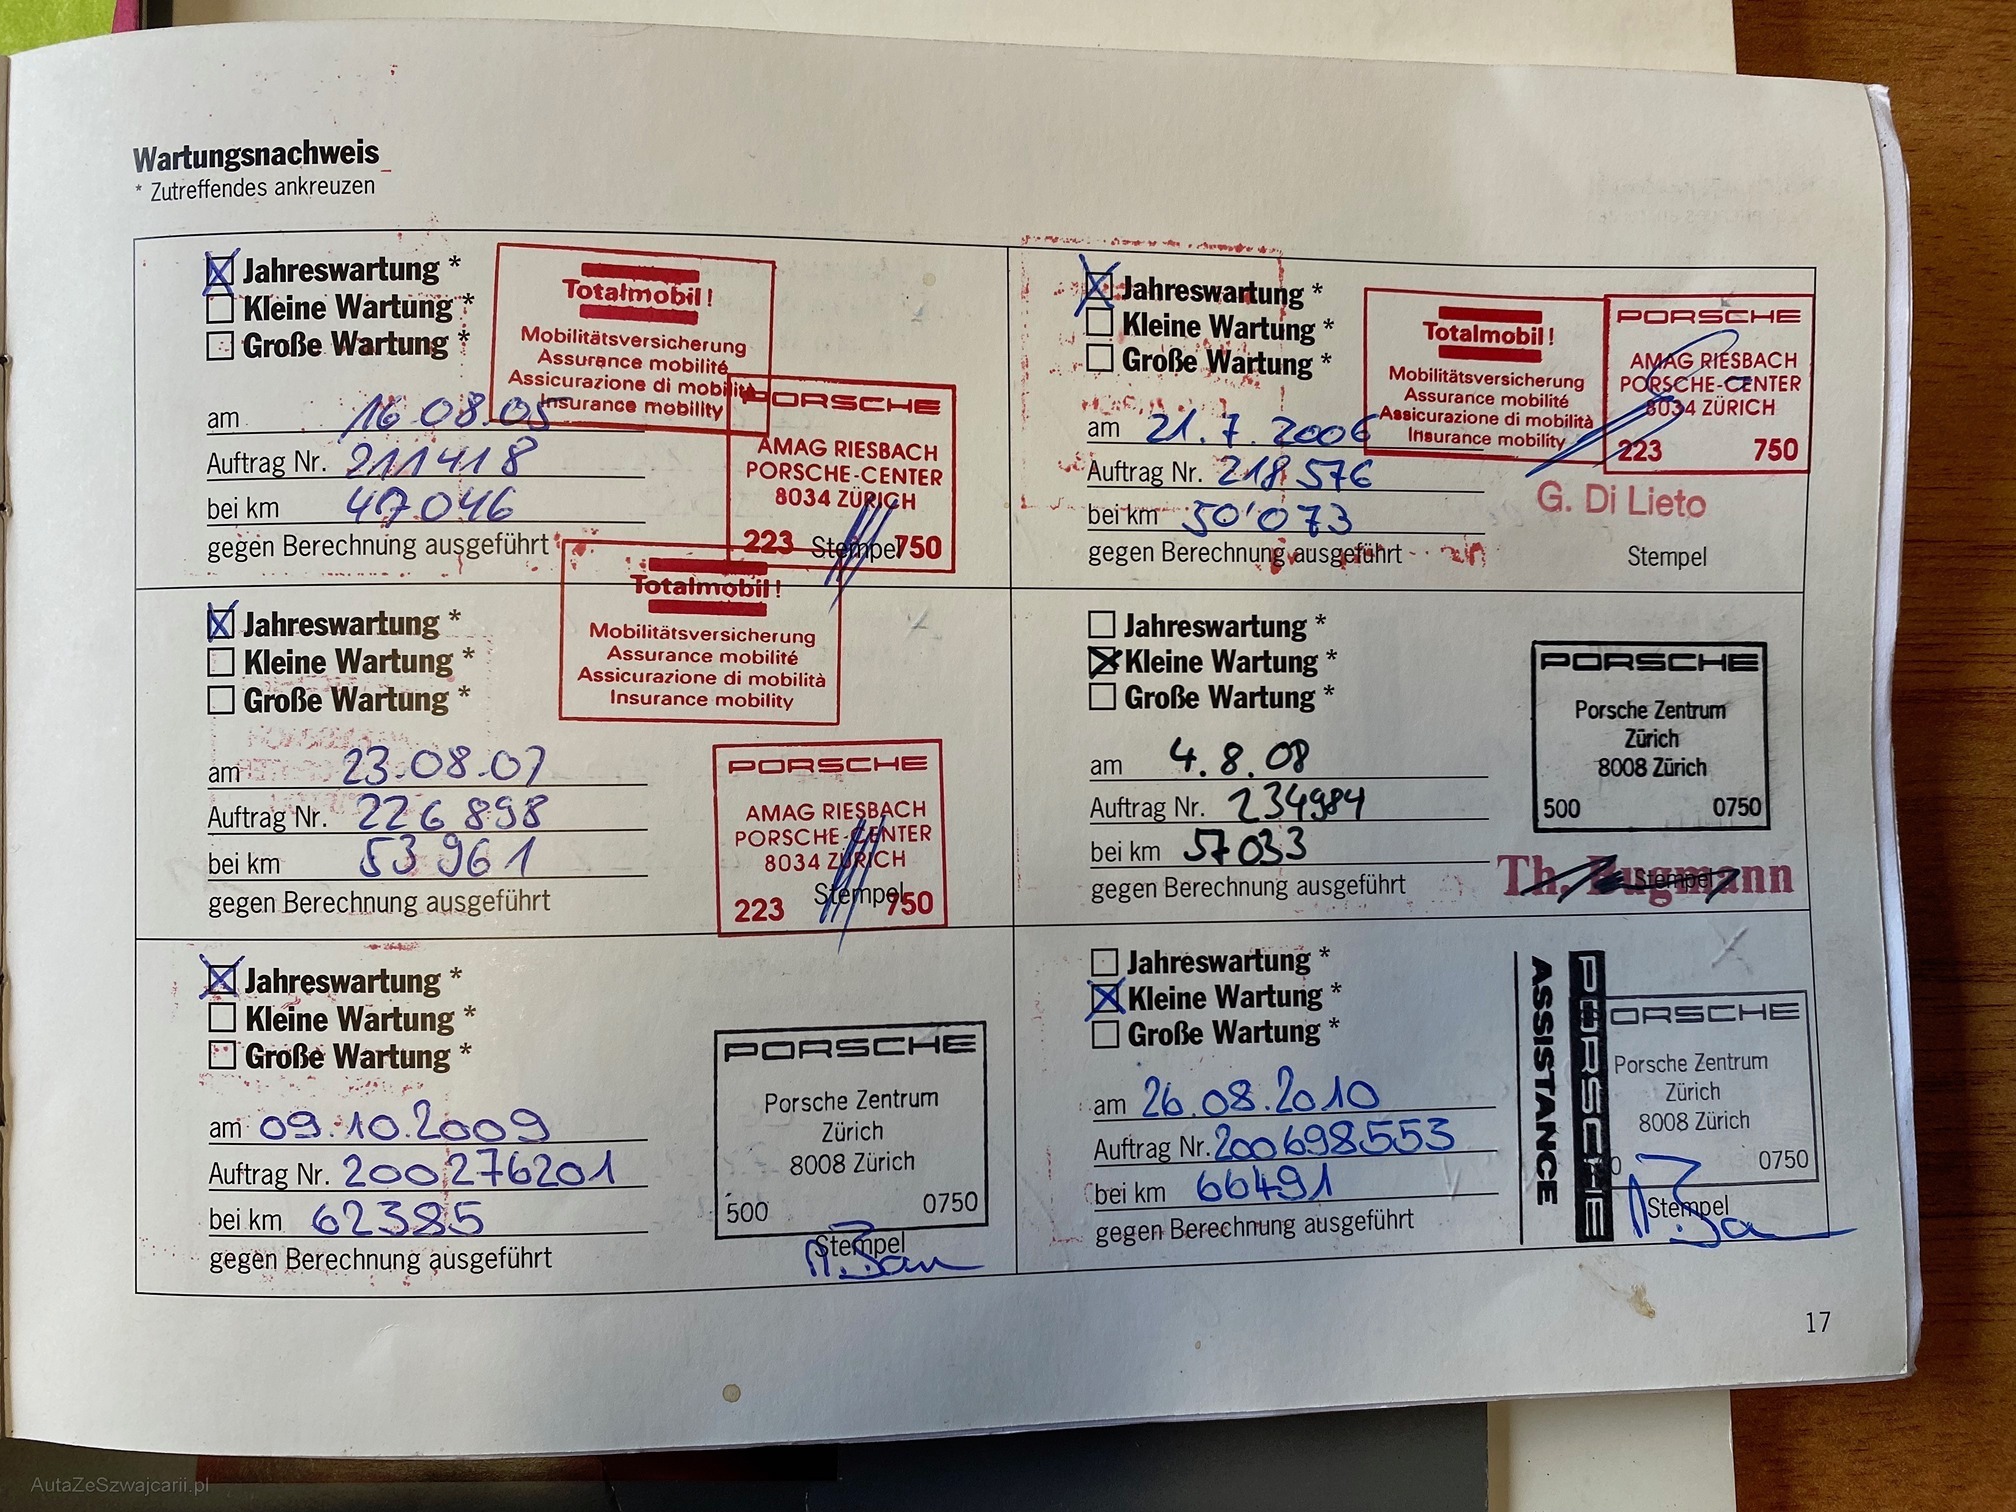 Wartungsnachweis
* Zutreffendes ankreuzen
Jahreswartung *
Kleine Wartung *
Große Wartung *
am 16.08.05
Auftrag Nr. 211418
bei km 47046
gegen Berechnung ausgeführt
Totalmobil!
Mobilitätsversicherung
Assurance mobilité
Assicurazione di mobilità
Insurance mobility
PORSCHE
AMAG RIESBACH
PORSCHE-CENTER
8034 ZÜRICH
223 750
Stempel
Jahreswartung *
Kleine Wartung *
Große Wartung *
am 21.7.2006
Auftrag Nr. 218576
bei km 50'073
gegen Berechnung ausgeführt
Totalmobil!
Mobilitätsversicherung
Assurance mobilité
Assicurazione di mobilità
Insurance mobility
PORSCHE
AMAG RIESBACH
PORSCHE-CENTER
8034 ZÜRICH
223 750
G. Di Lieto
Stempel
Jahreswartung *
Kleine Wartung *
Große Wartung *
am 23.08.07
Auftrag Nr. 226898
bei km 53961
gegen Berechnung ausgeführt
Totalmobil!
Mobilitätsversicherung
Assurance mobilité
Assicurazione di mobilità
Insurance mobility
PORSCHE
AMAG RIESBACH
PORSCHE-CENTER
8034 ZÜRICH
223 750
Stempel
Jahreswartung *
Kleine Wartung *
Große Wartung *
am 4.8.08
Auftrag Nr. 234984
bei km 57033
gegen Berechnung ausgeführt
PORSCHE
Porsche Zentrum
Zürich
8008 Zürich
500 0750
Th. Bugmann
Stempel
Jahreswartung *
Kleine Wartung *
Große Wartung *
am 09.10.2009
Auftrag Nr. 200276201
bei km 62385
gegen Berechnung ausgeführt
PORSCHE
Porsche Zentrum
Zürich
8008 Zürich
500 0750
Stempel
Jahreswartung *
Kleine Wartung *
Große Wartung *
am 26.08.2010
Auftrag Nr. 200698553
bei km 66491
gegen Berechnung ausgeführt
PORSCHE
ASSISTANCE
PORSCHE
Porsche Zentrum
Zürich
8008 Zürich
0750
Stempel
17
AutaZeSzwajcarii.pl